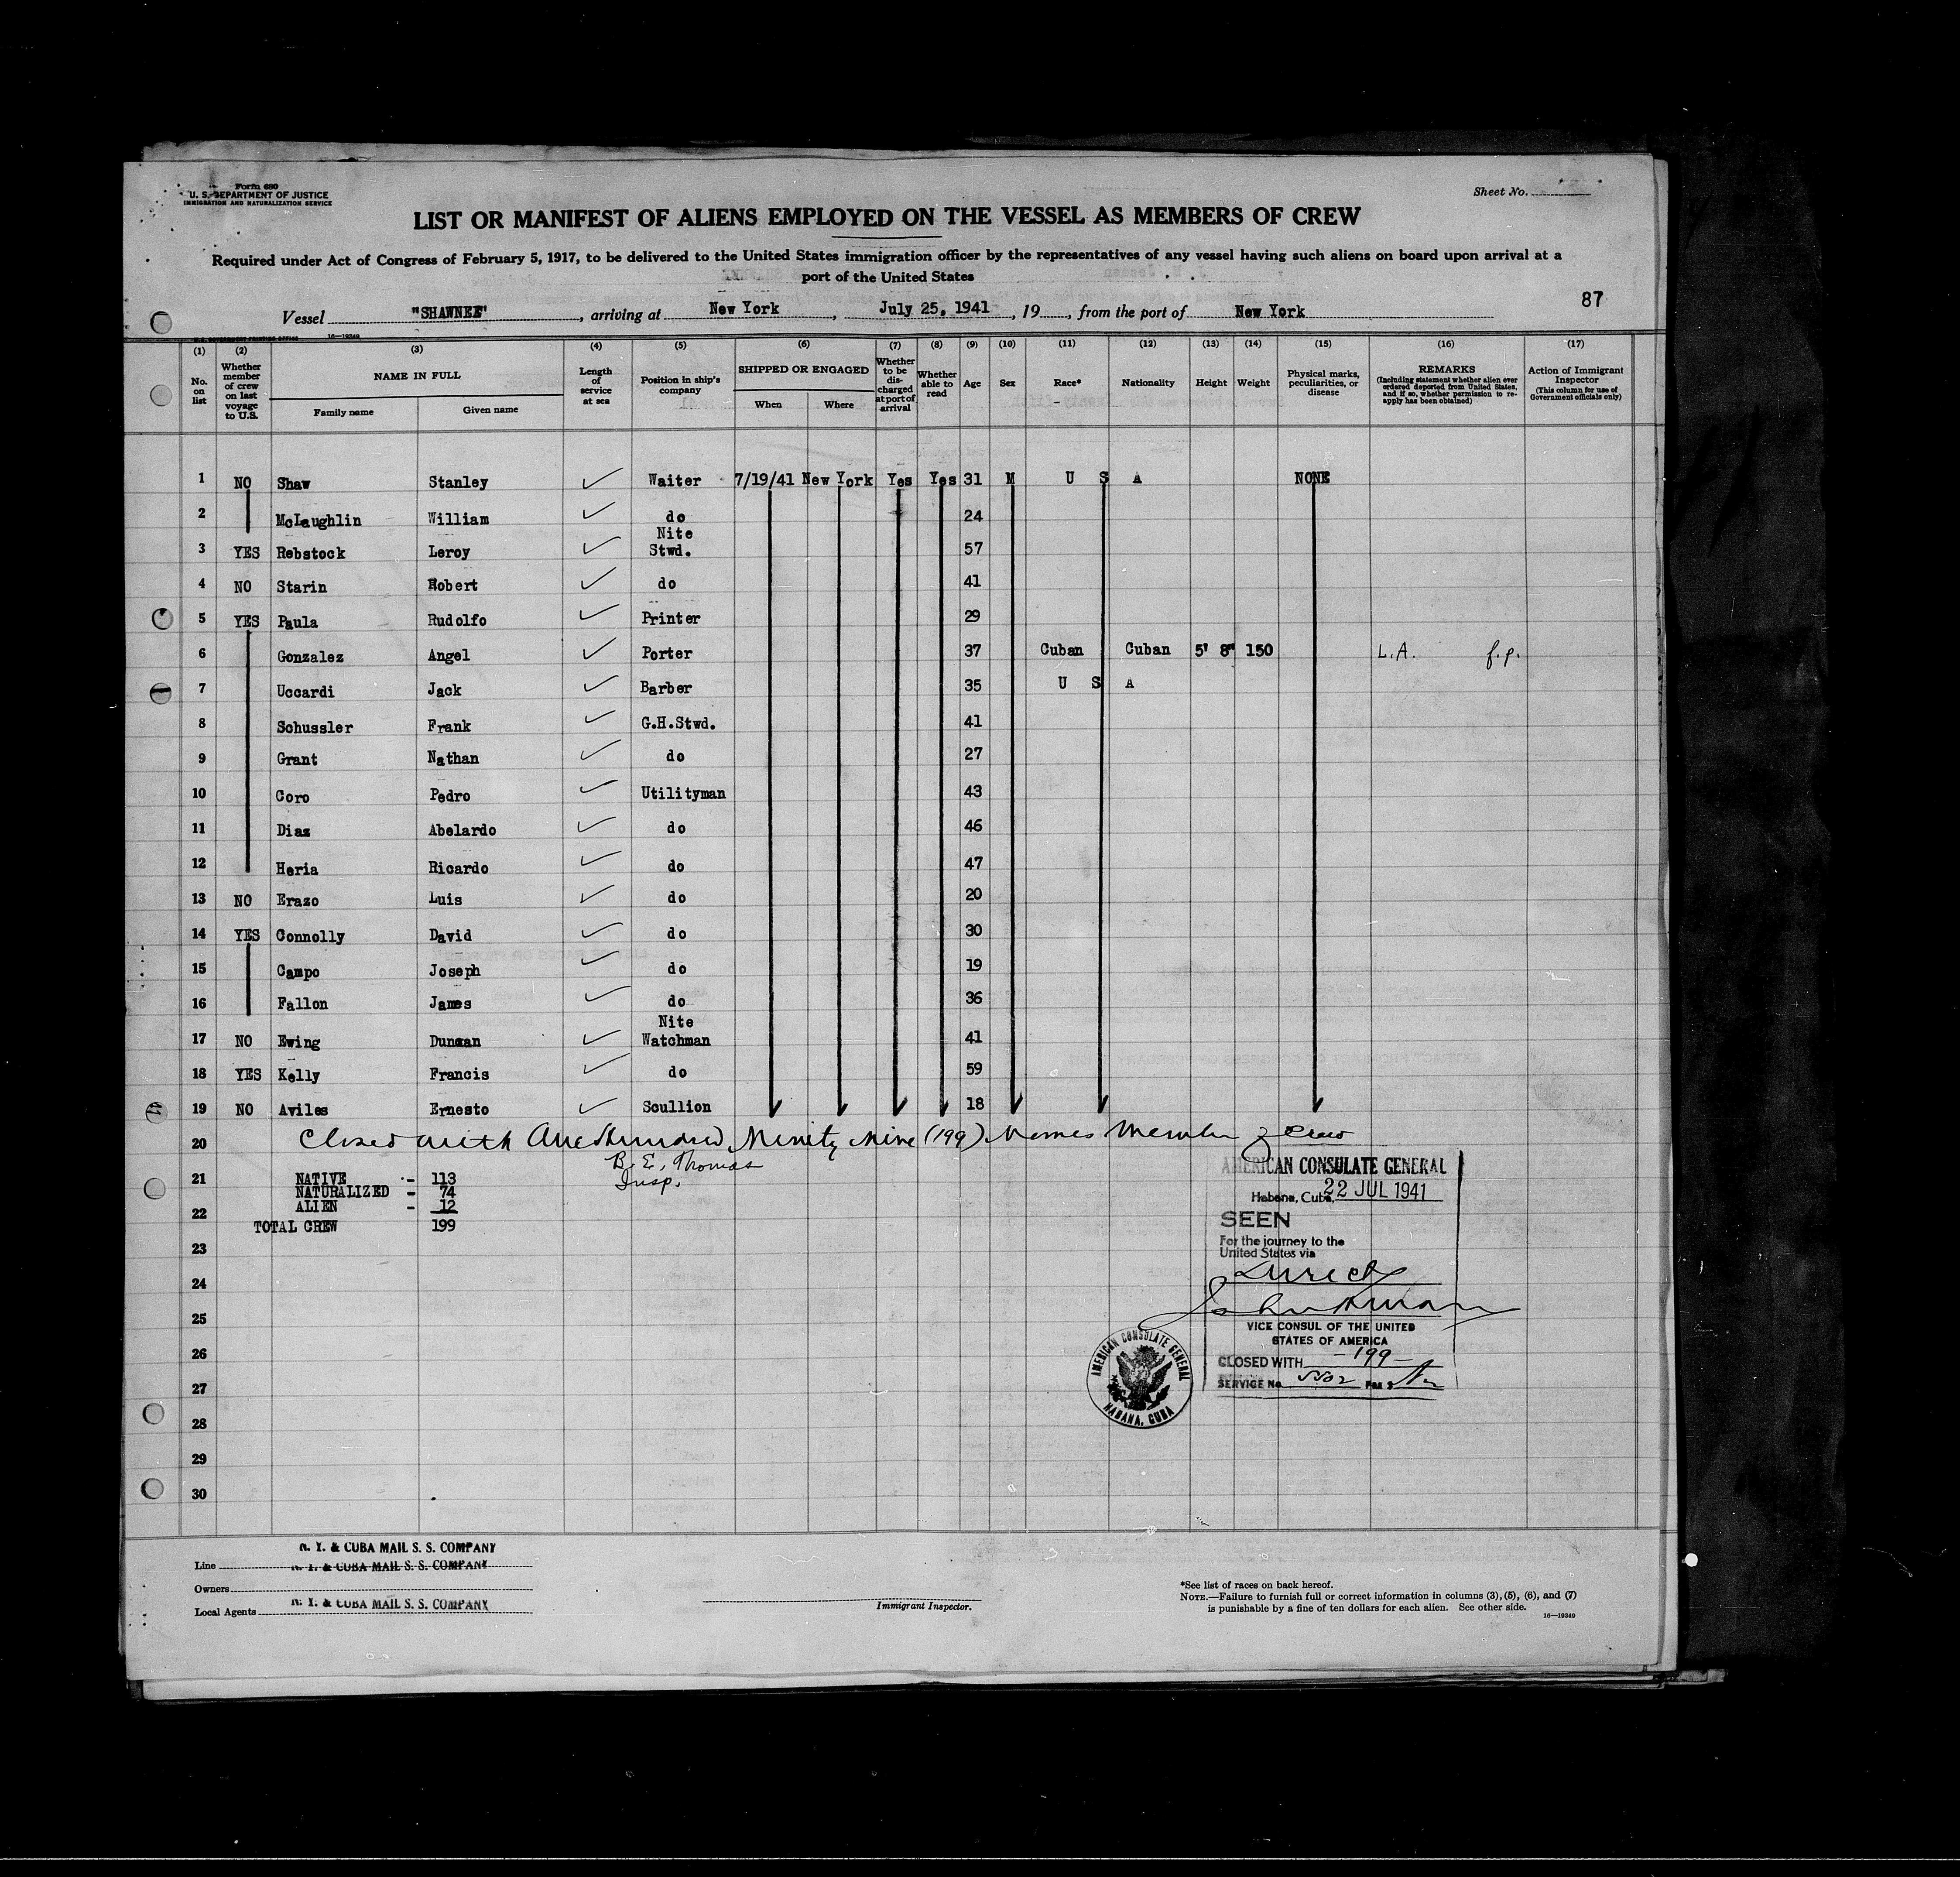 Form 680
U. S. DEPARTMENT OF JUSTICE
IMMIGRATION AND NATURALIZATION SERVICE
Sheet No.
LIST OR MANIFEST OF ALIENS EMPLOYED ON THE VESSEL AS MEMBERS OF CREW
Required under Act of Congress of February 5, 1917, to be delivered to the United States immigration officer by the representatives of any vessel having such aliens on board upon arrival at a
port of the United States
87
Vessel "SHAWNEE", arriving at New York, July 25, 1941, 19, from the port of New York
16—19349
(1) (2) (3) (4) (5) (6) (7) (8) (9) (10) (11) (12) (13) (14) (15) (16) (17)
No. on list
Whether member of crew on last voyage to U.S.
NAME IN FULL
Family name
Given name
Length of service at sea
Position in ship's company
SHIPPED OR ENGAGED
When
Where
Whether to be discharged at port of arrival
Whether able to read
Age
Sex
Race*
Nationality
Height
Weight
Physical marks, peculiarities, or disease
REMARKS
(Including statement whether alien ever ordered deported from United States, and if so, whether permission to reapply has been obtained)
Action of Immigrant Inspector
(This column for use of Government officials only)
1 NO Shaw Stanley ✓ Waiter 7/19/41 New York Yes Yes 31 M U S A NONE
2 McLaughlin William ✓ do 24
3 YES Rebstock Leroy ✓ Nite Stwd. 57
4 NO Starin Robert ✓ do 41
5 YES Paula Rudolfo ✓ Printer 29
6 Gonzalez Angel ✓ Porter 37 Cuban Cuban 5' 8" 150 L.A. f.p.
7 Uccardi Jack ✓ Barber 35 U S A
8 Schussler Frank ✓ G.H.Stwd. 41
9 Grant Nathan ✓ do 27
10 Coro Pedro ✓ Utilityman 43
11 Diaz Abelardo ✓ do 46
12 Heria Ricardo ✓ do 47
13 NO Erazo Luis ✓ do 20
14 YES Connolly David ✓ do 30
15 Campo Joseph ✓ do 19
16 Fallon James ✓ do 36
17 NO Ewing Duncan ✓ Nite Watchman 41
18 YES Kelly Francis ✓ do 59
19 NO Aviles Ernesto ✓ Scullion 18
20 Closed with One Hundred Ninety Nine (199) Names Member of Crew
B. E. Thomas
Insp.
21 NATIVE - 113
NATURALIZED - 74
22 ALIEN - 12
TOTAL CREW 199
23
24
25
26
27
28
29
30
AMERICAN CONSULATE GENERAL
Habana, Cuba, 22 JUL 1941
SEEN
For the journey to the
United States via
Direct
VICE CONSUL OF THE UNITED
STATES OF AMERICA
CLOSED WITH -199-
SERVICE No. Fee $
AMERICAN CONSULATE GENERAL
HABANA, CUBA
N. Y. & CUBA MAIL S. S. COMPANY
Line N. Y. & CUBA MAIL S. S. COMPANY
Owners
Local Agents N. Y. & CUBA MAIL S. S. COMPANY
Immigrant Inspector.
*See list of races on back hereof.
NOTE.—Failure to furnish full or correct information in columns (3), (5), (6), and (7)
is punishable by a fine of ten dollars for each alien. See other side.
16—19349